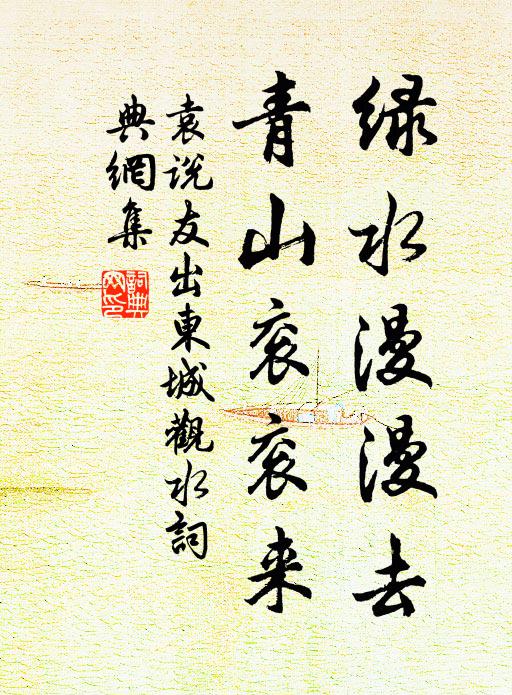 绿水漫漫去
青山衮衮来
袁說友出東城觀水詞
典網集
詞典
网印